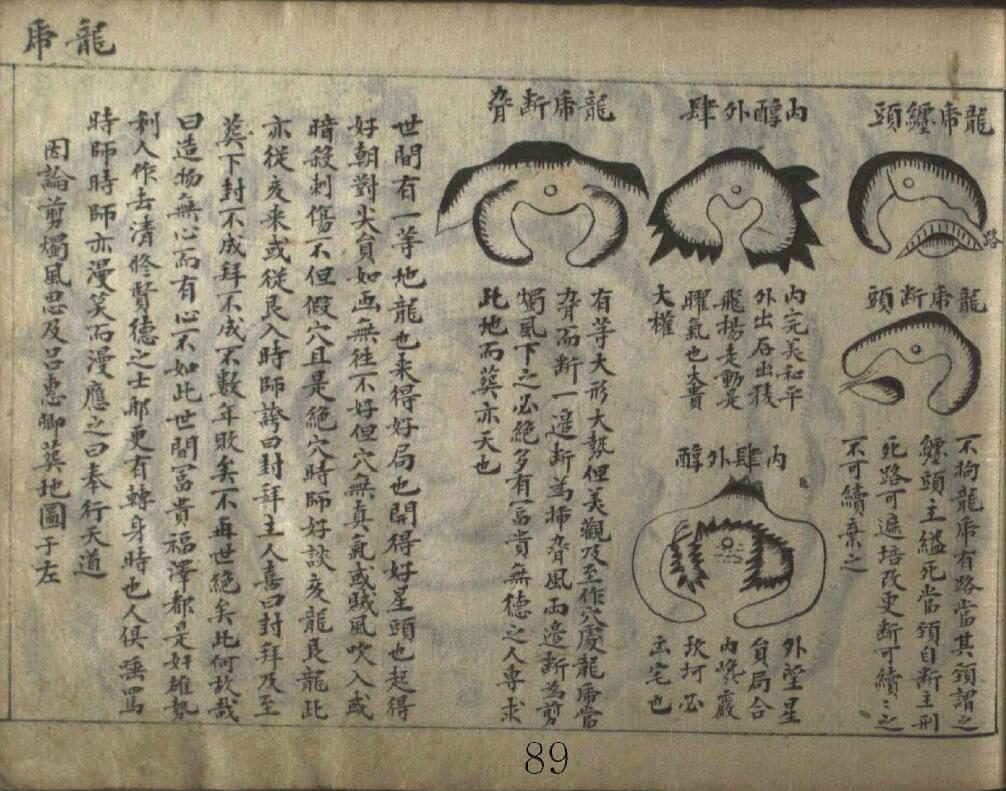 龍虎
龍虎纏頭
路
龍虎断頭
不拘龍虎有路當其頚謂之
纏頭主縊死當頚自断主刑
死路可遮培改更断可續〻之
不可續棄之
内醇外肆
内完美和平
外出唇出稜
飛揚走動是
曜氣也大貴
大權
内肆外醇
外堂星
貟局合
内巉巖
坎坷必
凶宅也
龍虎断脊
有等大形大勢但美觀及至作穴處龍虎當
脊而断一邉断為揷脊風兩邉断為剪
燭風下之必絶多有富貴無德之人専求
此地而葬亦天也
世間有一等地龍也来得好局也開得好星頭也起得
好朝對尖貟如画無徃不好但穴無真氣或賊風吹入或
暗殺刺傷不但假穴且是絶穴時師好談亥龍艮龍此
亦従亥来或従艮入時師誇曰封拜主人喜曰封拜及至
葬下封不成拜不成不数年敗矣不再世絶矣此何故哉
曰造物無心而有心不如此世間冨貴福澤都是奸雄勢
利人作去清修賢德之士那更有轉身時也人俱唾罵
時師時師亦漫笑而漫應之曰奉行天道
因論剪燭風忠及吕惠卿葬地圖于左
89